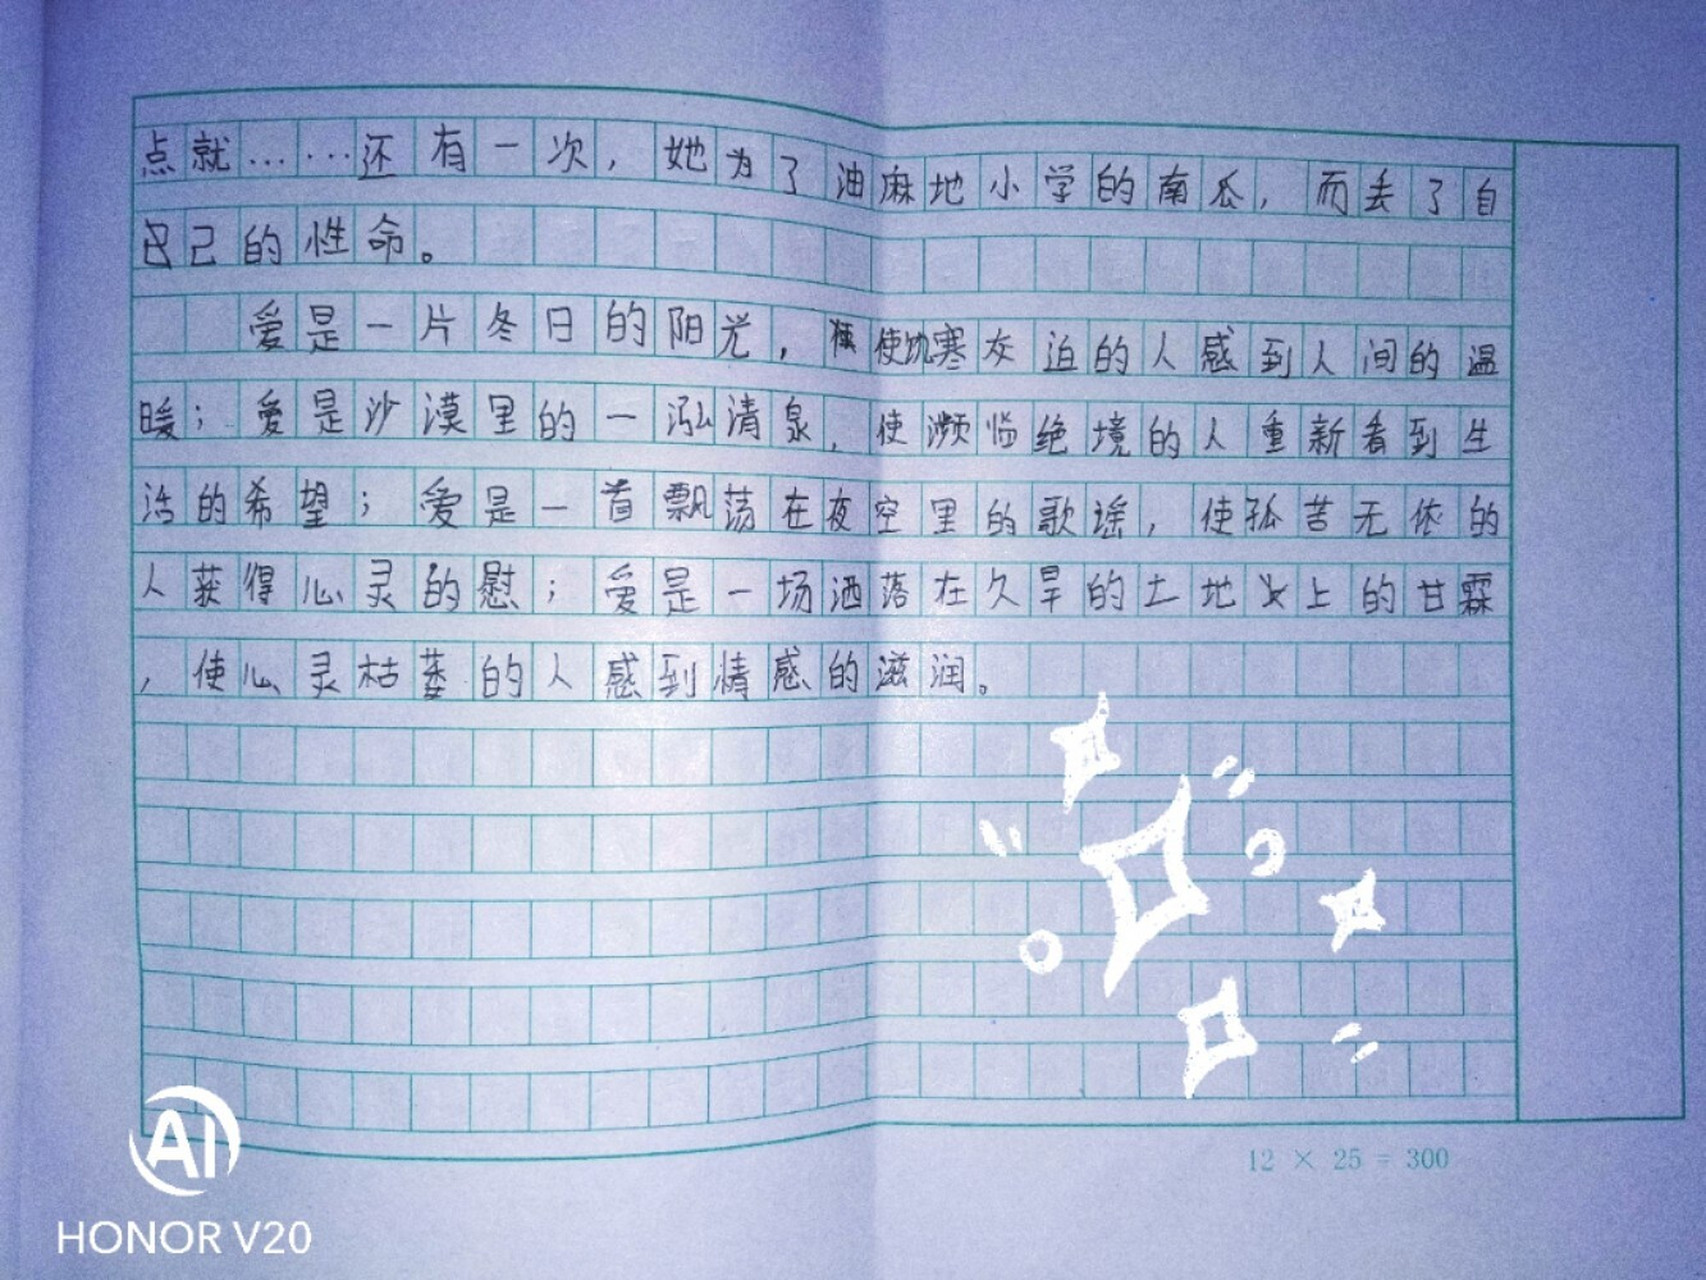 点就……还有一次，她为了油麻地小学的南瓜，而丢了自
己的性命。
爱是一片冬日的阳光，使饥寒交迫的人感到人间的温
暖；爱是沙漠里的一泓清泉，使濒临绝境的人重新看到生
活的希望；爱是一首飘荡在夜空里的歌谣，使孤苦无依的
人获得心灵的慰；爱是一场洒落在久旱的土地上的甘霖
，使心灵枯萎的人感到情感的滋润。
12 × 25 = 300
AI
HONOR V20